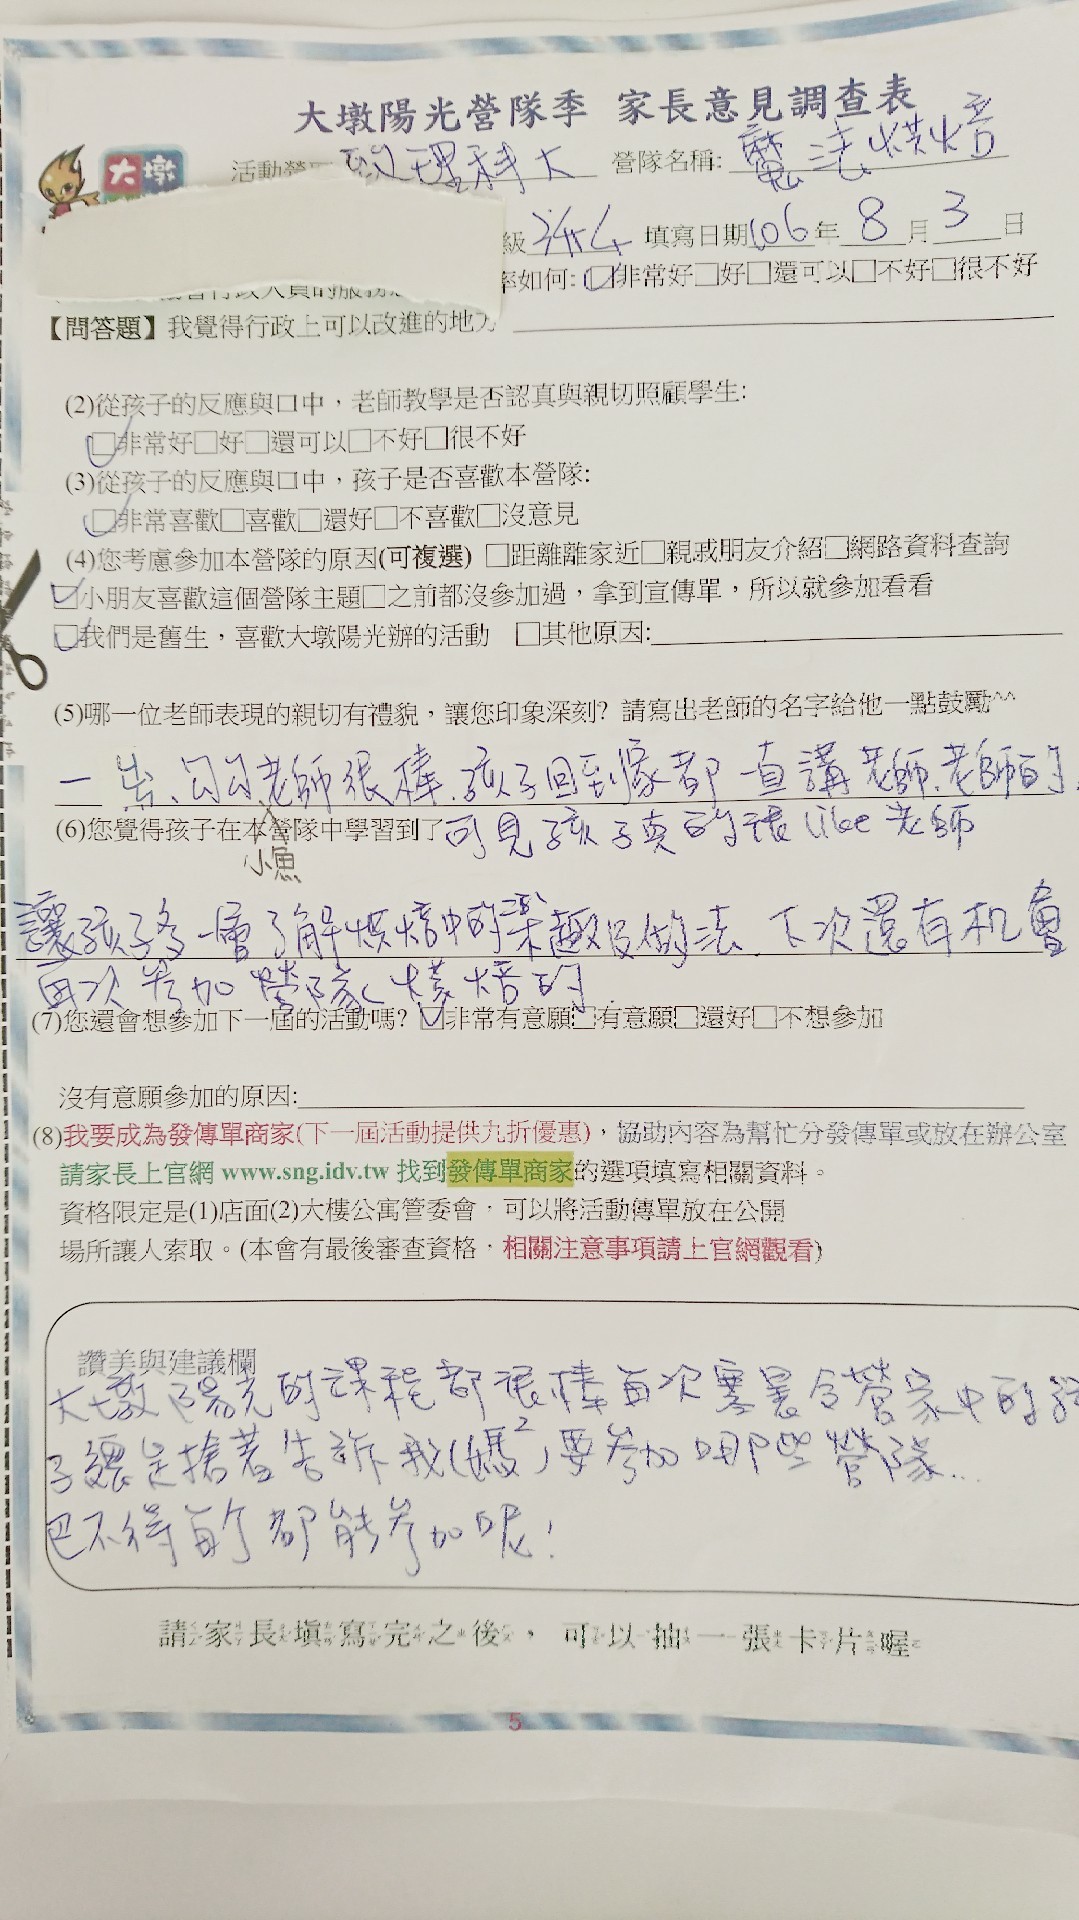 大墩陽光營隊季 家長意見調查表
大墩
活動營 致理科大 營隊名稱: 魔法烘焙
級 升4 填寫日期106年 8 月 3 日
率如何: □非常好□好□還可以□不好□很不好
【問答題】我覺得行政上可以改進的地方
(2)從孩子的反應與口中，老師教學是否認真與親切照顧學生:
□非常好□好□還可以□不好□很不好
(3)從孩子的反應與口中，孩子是否喜歡本營隊:
□非常喜歡□喜歡□還好□不喜歡□沒意見
(4)您考慮參加本營隊的原因(可複選) □距離離家近□親戚朋友介紹□網路資料查詢
□小朋友喜歡這個營隊主題□之前都沒參加過，拿到宣傳單，所以就參加看看
□我們是舊生，喜歡大墩陽光辦的活動 □其他原因:
(5)哪一位老師表現的親切有禮貌，讓您印象深刻? 請寫出老師的名字給他一點鼓勵^^
勾勾老師很棒.孩子回到家都一直講老師.老師的
(6)您覺得孩子在本營隊中學習到了 可見孩子真的很like老師
小魚
讓孩子多一層了解烘焙中的樂趣及做法.下次還有机會
再次參加營隊 烘焙的
(7)您還會想參加下一屆的活動嗎? □非常有意願□有意願□還好□不想參加
沒有意願參加的原因:
(8)我要成為發傳單商家(下一屆活動提供九折優惠)，協助內容為幫忙分發傳單或放在辦公室
請家長上官網 www.sng.idv.tw 找到發傳單商家的選項填寫相關資料。
資格限定是(1)店面(2)大樓公寓管委會，可以將活動傳單放在公開
場所讓人索取。(本會有最後審查資格，相關注意事項請上官網觀看)
讚美與建議欄
大墩陽光的課程都很棒每次寒暑令營家中的孩
子總是搶著告訴我(媽²)要參加哪些營隊...
巴不得每个都能參加呢!
請家長填寫完之後，可以抽一張卡片喔
5